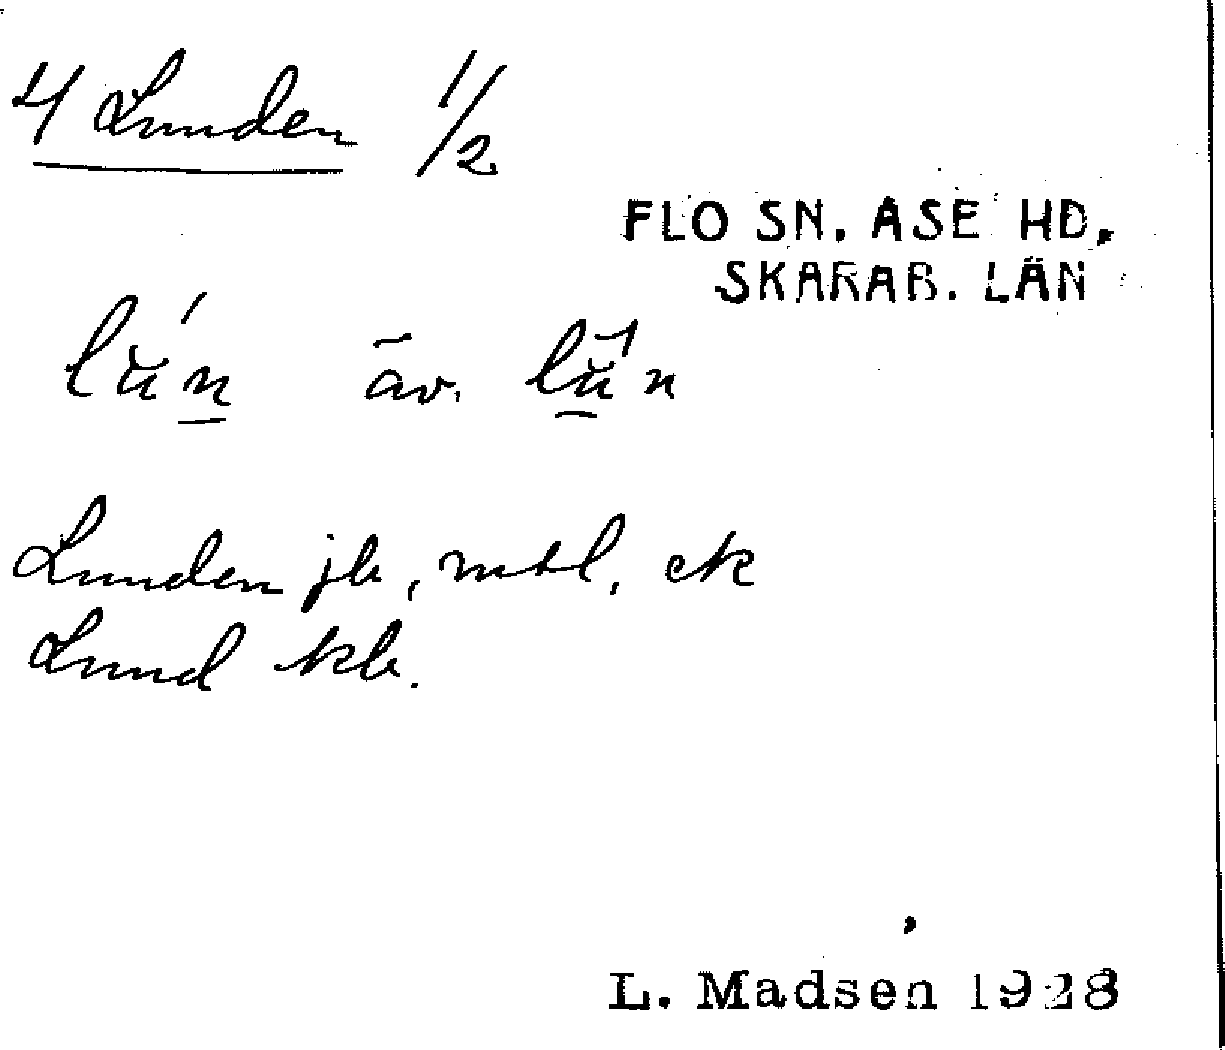 4 Lunden 1/2
FLO SN. ASE HD.
SKARAB. LÄN
lu̇́n̲ äv. lu̲̇́n
Lunden jb, mtl, ek
Lund kb.
L. Madsen 1928